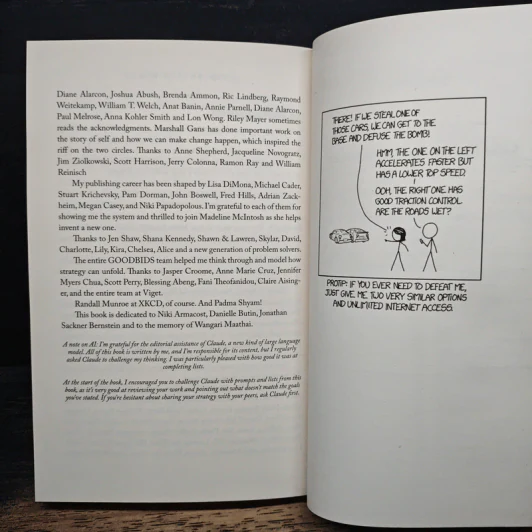 Diane Alarcon, Joshua Abush, Brenda Ammon, Ric Lindberg, Raymond
Weitekamp, William T. Welch, Anat Banin, Annie Parnell, Diane Alarcon,
Paul Melrose, Anna Kohler Smith and Lon Wong. Riley Mayer sometimes
reads the acknowledgments. Marshall Gans has done important work on
the story of self and how we can make change happen, which inspired the
riff on the two circles. Thanks to Anne Shepherd, Jacqueline Novogratz,
Jim Ziolkowski, Scott Harrison, Jerry Colonna, Ramon Ray and William
Reinisch
My publishing career has been shaped by Lisa DiMona, Michael Cader,
Stuart Krichevsky, Pam Dorman, John Boswell, Fred Hills, Adrian Zack-
heim, Megan Casey, and Niki Papadopolous. I'm grateful to each of them for
showing me the system and thrilled to join Madeline McIntosh as she helps
invent a new one.
Thanks to Jen Shaw, Shana Kennedy, Shawn & Lawren, Skylar, David,
Charlotte, Lily, Kira, Chelsea, Alice and a new generation of problem solvers.
The entire GOODBIDS team helped me think through and model how
strategy can unfold. Thanks to Jasper Croome, Anne Marie Cruz, Jennifer
Myers Chua, Scott Perry, Blessing Abeng, Fani Theofanidou, Claire Aising-
er, and the entire team at Viget.
Randall Munroe at XKCD, of course. And Padma Shyam!
This book is dedicated to Niki Armacost, Danielle Butin, Jonathan
Sackner Bernstein and to the memory of Wangari Maathai.
A note on AI: I'm grateful for the editorial assistance of Claude, a new kind of large language
model. All of this book is written by me, and I'm responsible for its content, but I regularly
asked Claude to challenge my thinking. I was particularly pleased with how good it was at
completing lists.
At the start of the book, I encouraged you to challenge Claude with prompts and lists from this
book, as it's very good at reviewing your work and pointing out what doesn't match the goals
you've stated. If you're hesitant about sharing your strategy with your peers, ask Claude first.
THERE! IF WE STEAL ONE OF
THOSE CARS, WE CAN GET TO THE
BASE AND DEFUSE THE BOMB!
HMM, THE ONE ON THE LEFT
ACCELERATES FASTER BUT
HAS A LOWER TOP SPEED.
OOH, THE RIGHT ONE HAS
GOOD TRACTION CONTROL.
ARE THE ROADS WET?
PROTIP: IF YOU EVER NEED TO DEFEAT ME,
JUST GIVE ME TWO VERY SIMILAR OPTIONS
AND UNLIMITED INTERNET ACCESS.